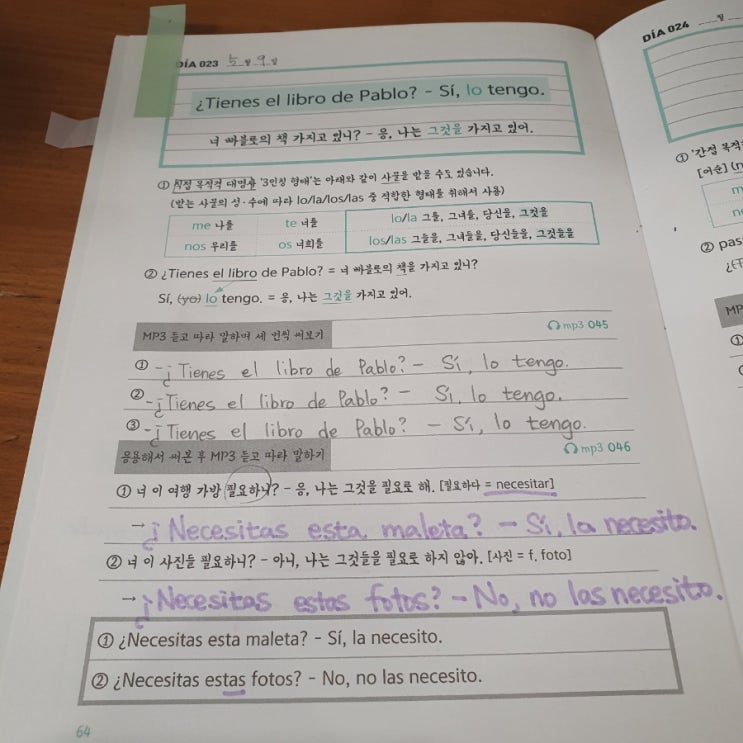 DÍA 023 5월 9일
¿Tienes el libro de Pablo? – Sí, lo tengo.
너 빠블로의 책 가지고 있니? – 응, 나는 그것을 가지고 있어.
① 직접 목적격 대명사 '3인칭 형태'는 아래와 같이 사물을 받을 수도 있습니다.
(받는 사물의 성·수에 따라 lo/la/los/las 중 적합한 형태를 취해서 사용)
me 나를 te 너를 lo/la 그를, 그녀를, 당신을, 그것을
nos 우리를 os 너희를 los/las 그들을, 그녀들을, 당신들을, 그것들을
② ¿Tienes el libro de Pablo? = 너 빠블로의 책을 가지고 있니?
Sí, (yo) lo tengo. = 응, 나는 그것을 가지고 있어.
MP3 듣고 따라 말하며 세 번씩 써보기 mp3 045
① - ¿Tienes el libro de Pablo? – Sí, lo tengo.
② - ¿Tienes el libro de Pablo? – Sí, lo tengo.
③ - ¿Tienes el libro de Pablo? – Sí, lo tengo.
응용해서 써본 후 MP3 듣고 따라 말하기 mp3 046
① 너 이 여행 가방 필요하니? – 응, 나는 그것을 필요로 해. [필요하다 = necesitar]
→ ¿Necesitas esta maleta? – Sí, la necesito.
② 너 이 사진들 필요하니? – 아니, 나는 그것들을 필요로 하지 않아. [사진 = f. foto]
→ ¿Necesitas estas fotos? – No, no las necesito.
① ¿Necesitas esta maleta? – Sí, la necesito.
② ¿Necesitas estas fotos? – No, no las necesito.
64
DÍA 024 월
① '간접 목적
[어순] (n
② pas
MP
①